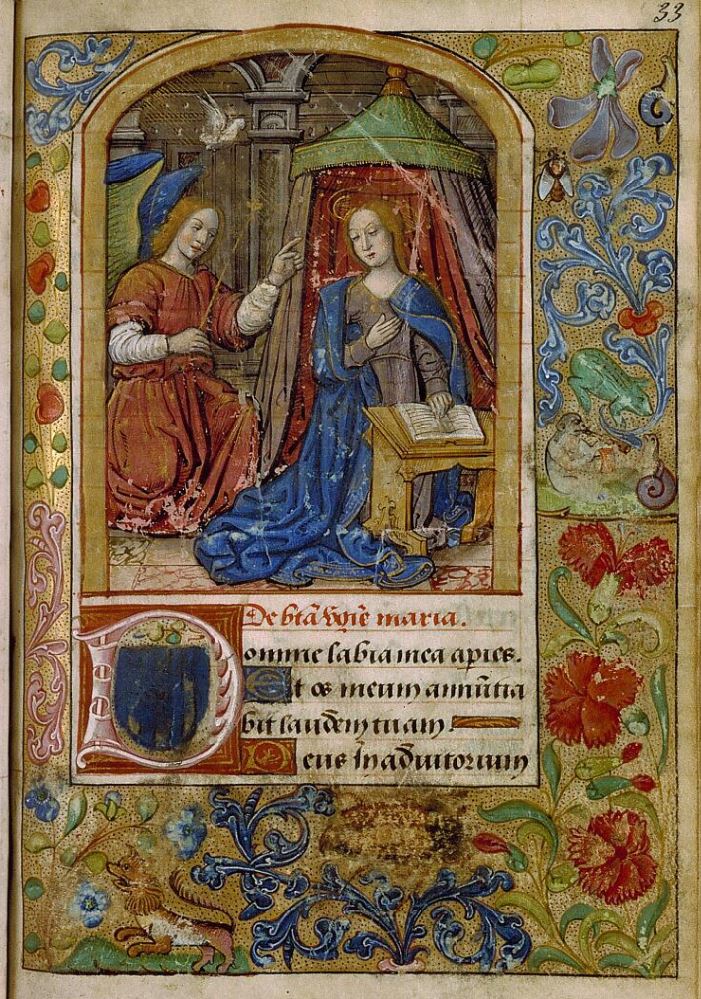 33
De btã ṽgiẽ maria.
Domine labia mea aꝑies.
Et os meum annũtia
bit laudẽ tuam.
Deus In adiutorium